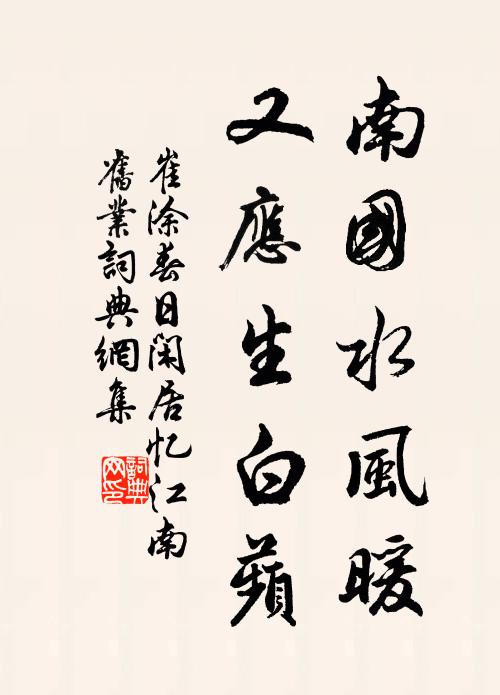 南國水風暖
又應生白蘋
崔涂春日閑居忆江南
舊業詞典網集
詞典
网印